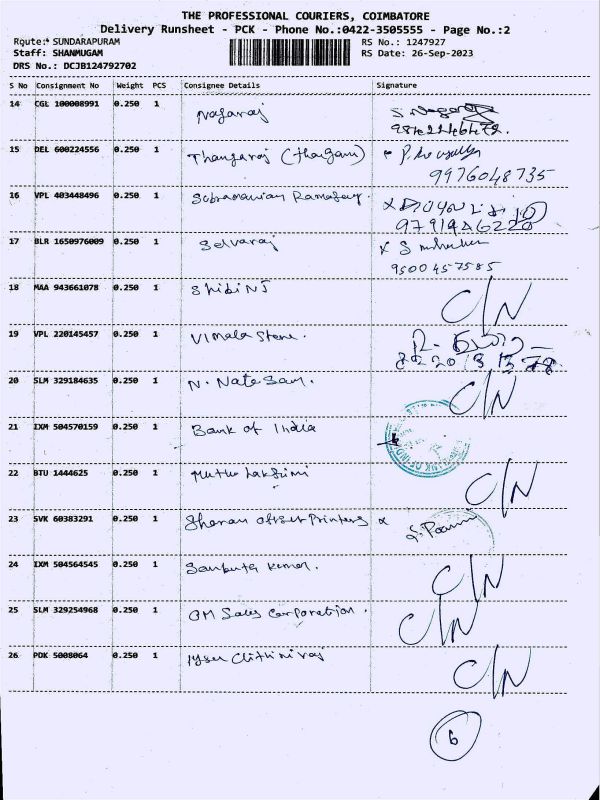 THE PROFESSIONAL COURIERS, COIMBATORE
Delivery Runsheet - PCK - Phone No.:0422-3505555 - Page No.:2
Route: SUNDARAPURAM
RS No.: 1247927
Staff: SHANMUGAM
RS Date: 26-Sep-2023
DRS No.: DCJB124792702
S No Consignment No Weight PCS Consignee Details Signature
14 CGL 100008991 0.250 1 Nagaraj
15 DEL 600224556 0.250 1 Thangaraj
9976048735
16 VPL 403448496 0.250 1
17 BLR 1650976009 0.250 1 Selvaraj
9500457585
18 MAA 943661078 0.250 1 Shibi NJ C/N
19 VPL 220145457 0.250 1 Vimala Stone.
20 SLM 329184635 0.250 1 N. Natesan. C/N
21 IXM 504570159 0.250 1 Bank of India
22 BTU 1444625 0.250 1 Muthu Lakshmi C/N
23 SVK 60383291 0.250 1 Sharan offset Printers
24 IXM 504564545 0.250 1 C/N
25 SLM 329254968 0.250 1 OM Sales Corporation. C/N
26 PDK 5008064 0.250 1 C/N
6